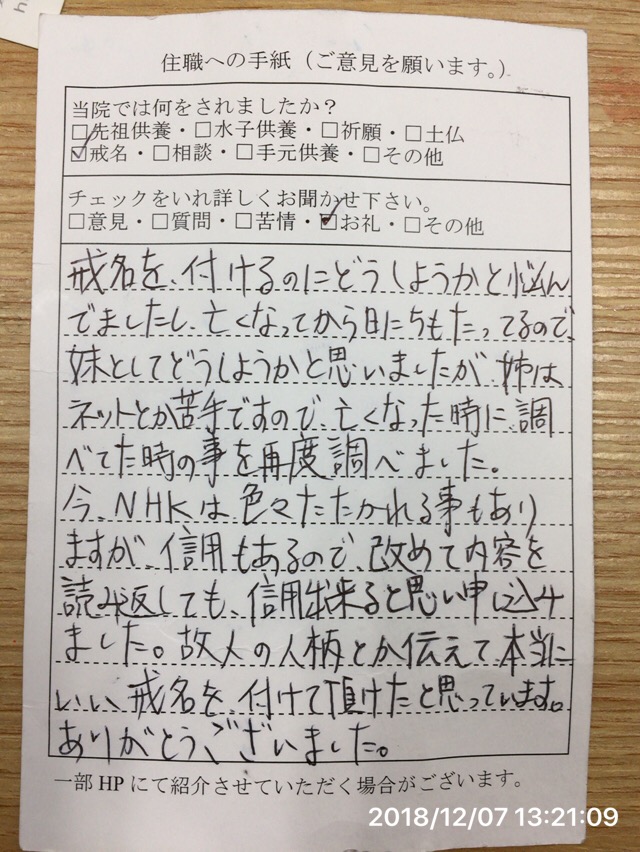 住職への手紙（ご意見を願います。）
当院では何をされましたか？
□先祖供養・□水子供養・□祈願・□土仏
☑戒名・□相談・□手元供養・□その他
チェックをいれ詳しくお聞かせ下さい。
□意見・□質問・□苦情・☑お礼・□その他
戒名を、付けるのにどうしようかと悩ん
でましたし、亡くなってから日にちもたってるので、
妹としてどうしようかと思いましたが 姉は
ネットとか苦手ですので、亡くなった時に、調
べてた時の事を再度調べました。
今、NHKは色々たたかれる事もあり
ますが、信用もあるので、改めて内容を
読み返しても、信用出来ると思い申し込み
ました。故人の人柄とか伝えて本当に
いい、戒名を、付けて頂けたと思っています。
ありがとうございました。
一部HPにて紹介させていただく場合がございます。
2018/12/07 13:21:09